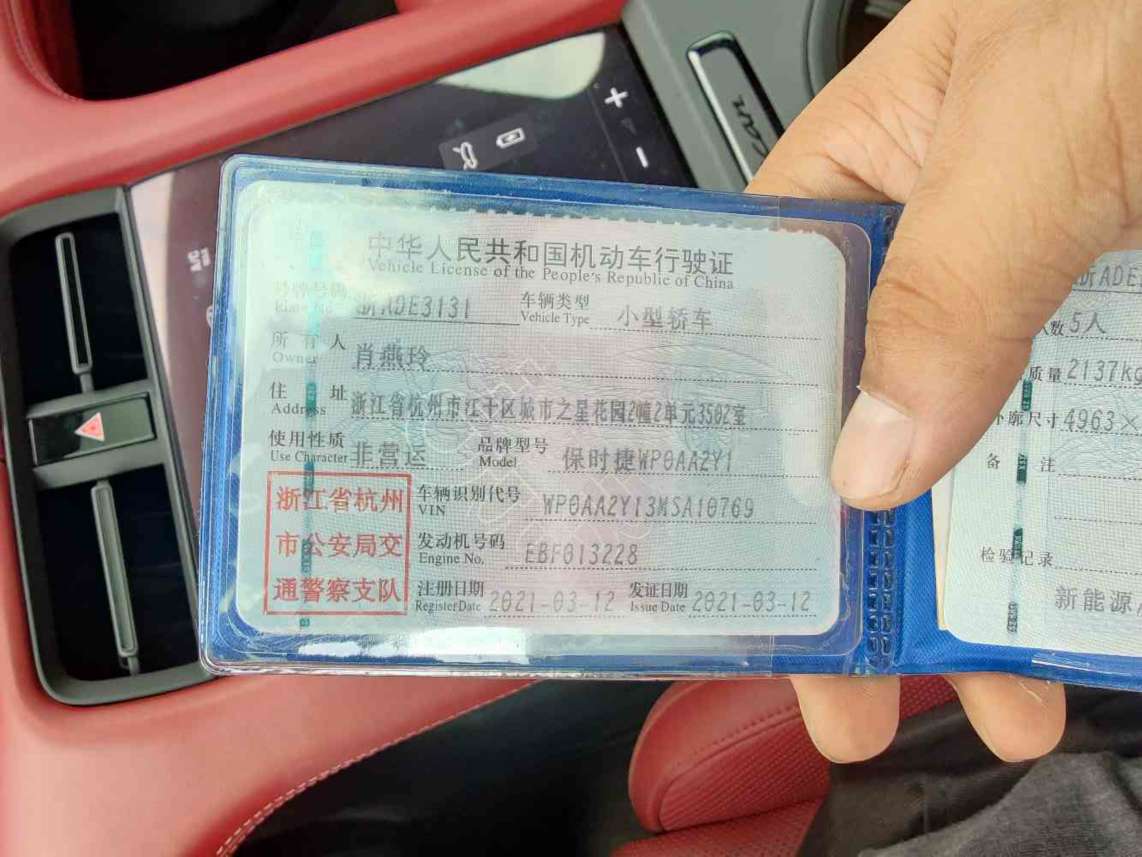 中华人民共和国机动车行驶证
Vehicle License of the People's Republic of China
号牌号码 浙ADE3131 车辆类型 小型轿车
Plate No. Vehicle Type
所有人 肖燕玲
Owner
住址 浙江省杭州市江干区城市之星花园2幢2单元3502室
Address
使用性质 非营运 品牌型号 保时捷WP0AA2Y1
Use Character Model
浙江省杭州
市公安局交
通警察支队
车辆识别代号 WP0AA2Y13MSA10769
VIN
发动机号码 EBF013228
Engine No.
注册日期 2021-03-12 发证日期 2021-03-12
Register Date Issue Date
浙ADE
人数 5人
质量 2137kg
外廓尺寸 4963×
备注
检验记录
新能源